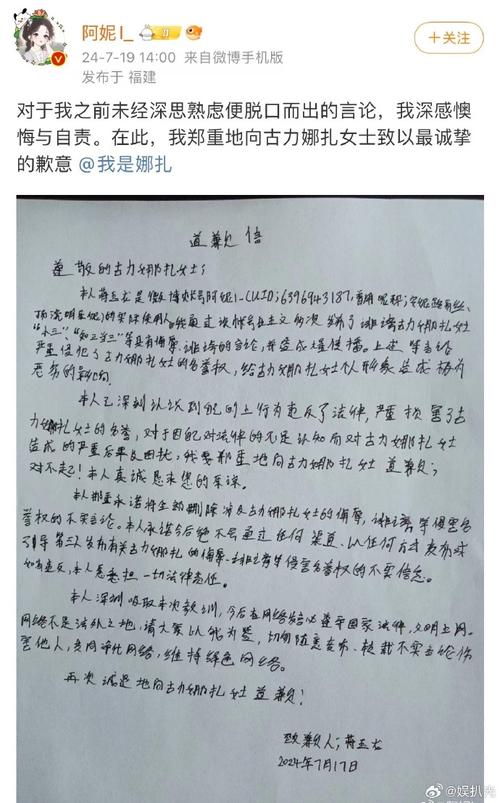 阿妮I_
24-7-19 14:00 来自微博手机版
发布于 福建
+关注
对于我之前未经深思熟虑便脱口而出的言论,我深感懊
悔与自责。在此,我郑重地向古力娜扎女士致以最诚挚
的歉意 @我是娜扎
道歉信
尊敬的古力娜扎女士:
本人蒋玉龙是微博账号阿妮I-(UID:6396943187,曾用昵称:
的实际使用人。我通过该账号自主义多次发布了诽谤古力娜扎女士
"小三"、"知三当三"等具有侮辱、诽谤的言论,并造成
严重侵犯了古力娜扎女士的名誉权,给古力娜扎女士个人形象造成极为
恶劣的影响。
本人已深刻认识到自己的上行为违反了法律,严重损害了古
力娜扎女士的名誉,对于因自己对法律的不足认知而对古力娜扎女士
造成的严重后果及困扰,我要郑重地向古力娜扎女士道歉,
对不起!本人真诚恳求您的原谅。
本人郑重承诺将全部删除涉及古力娜扎女士的侮辱、诽谤等侵害名
誉权的不实言论。本人承诺今后绝不会通过任何渠道、以任何方式发布或
引导第三人发布有关古力娜扎的侮辱、诽谤等侵害名誉权的不实信息。
如有违反,本人愿意承担一切法律责任。
本人深刻吸取本次教训,今后在网络发言必遵守国家法律,文明上网。
网络不是法外之地,请大家以我为鉴,切勿随意发布、转载不实言论伤
害他人,共同净化网络,维持绿色网络。
再次诚恳地向古力娜扎女士道歉!
致歉人:蒋玉龙
2024年7月17日
@娱扒